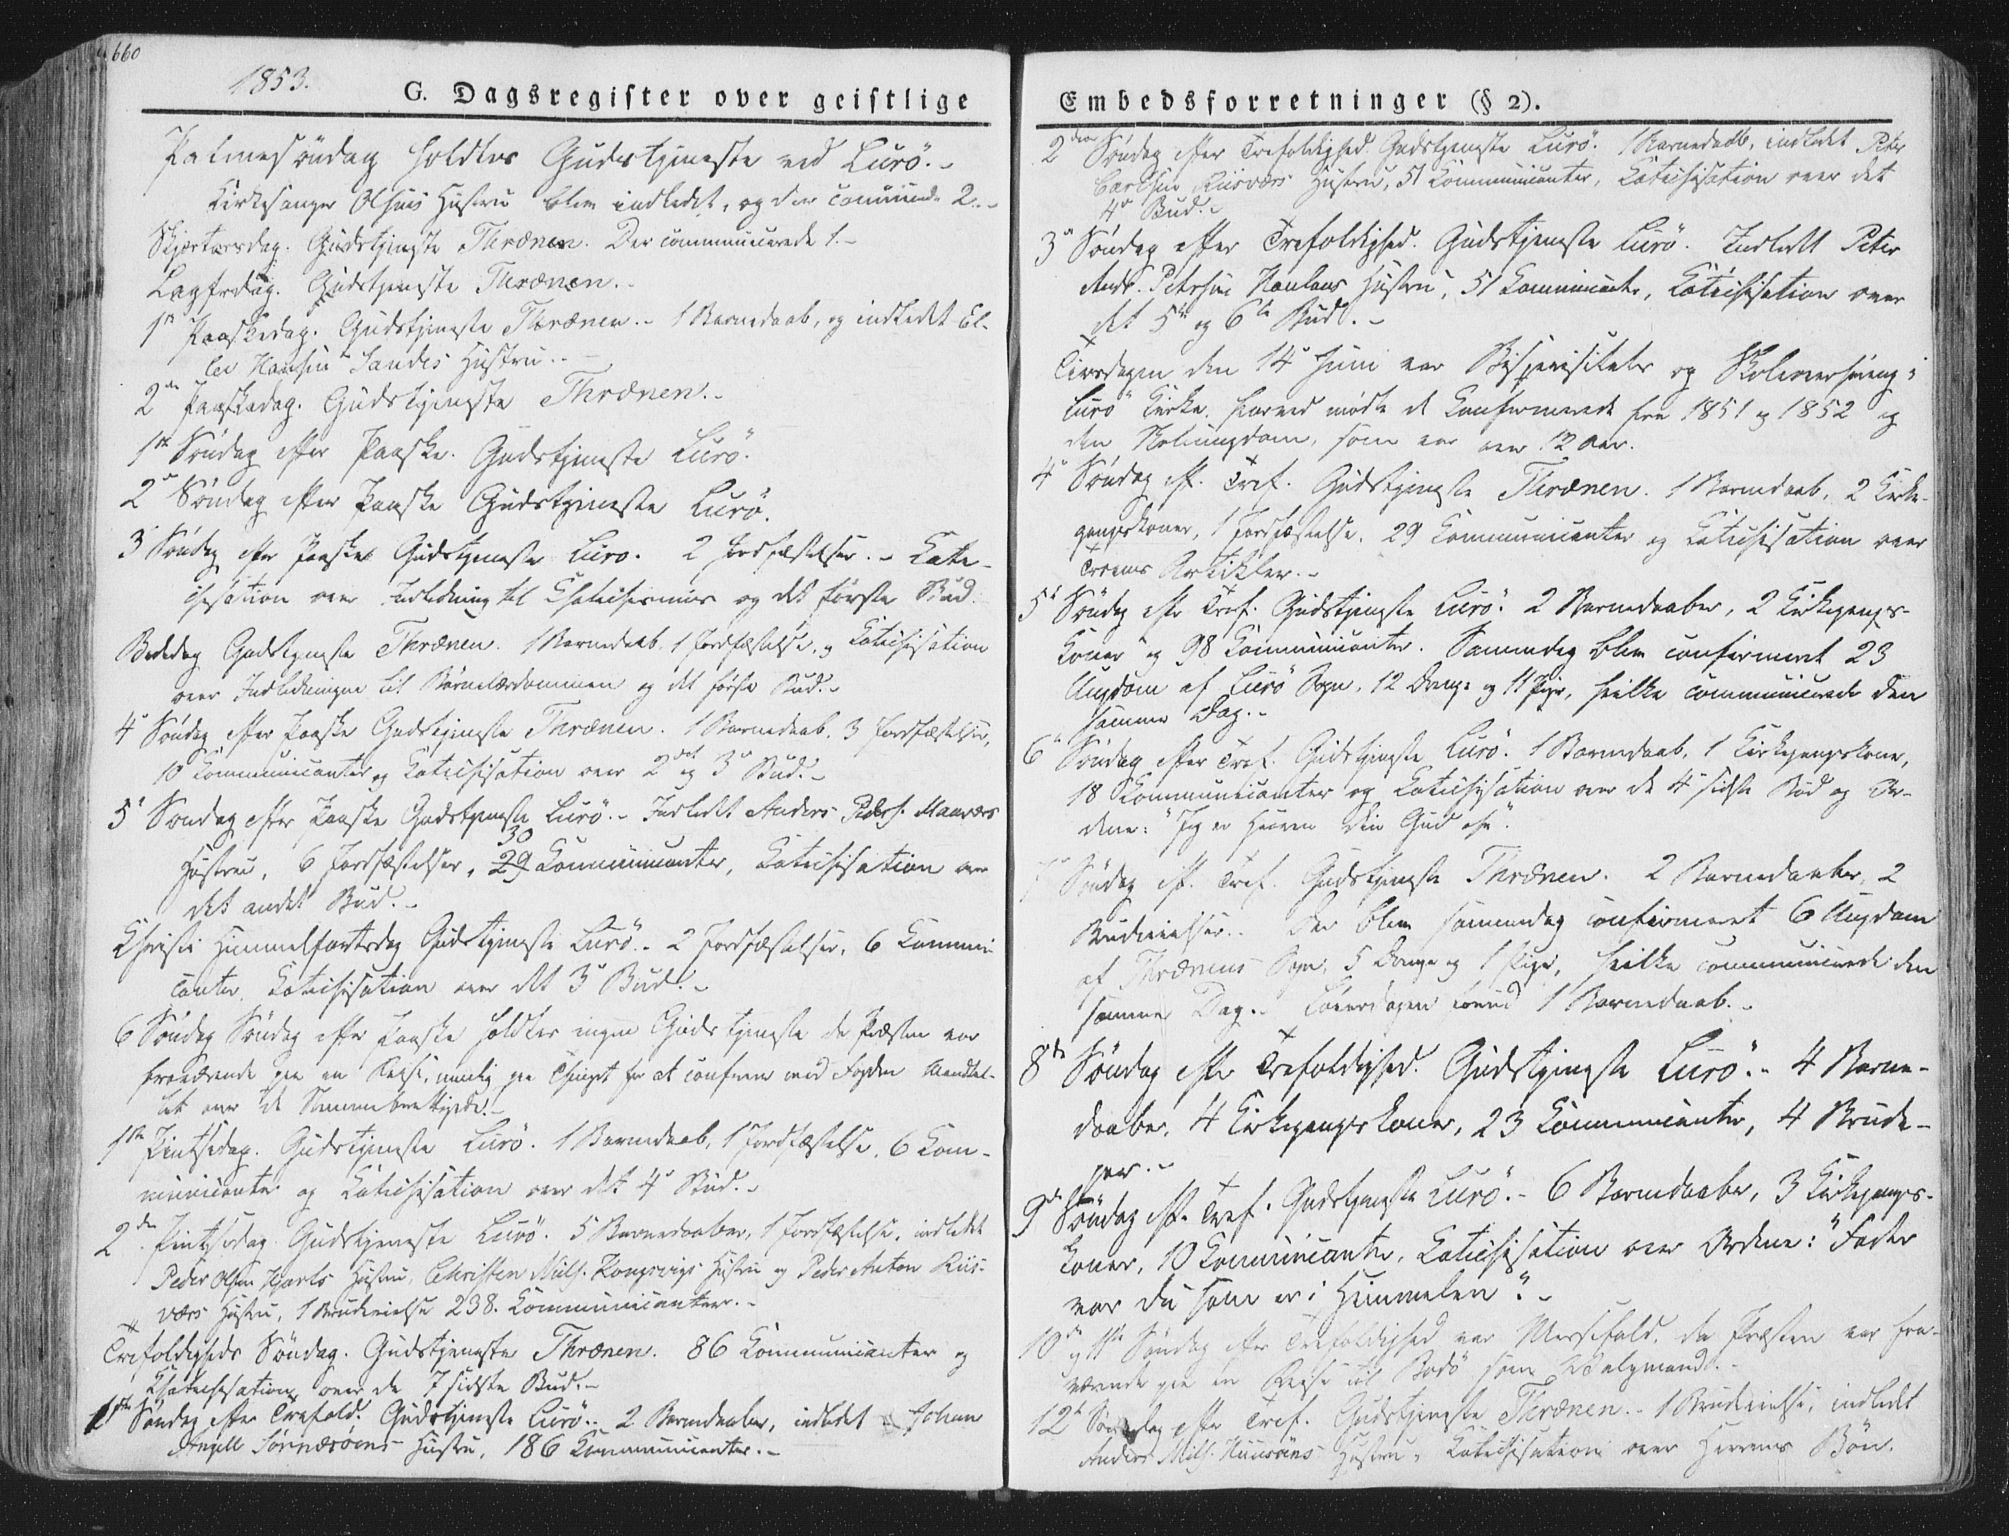 660
1853.
G. Dagsregister over geistlige
Palmesöndag holdtes Gudstjeneste ved Lurö.-
Kirkesanger Olsens Hustru blev indledet, og der communic. 2.-
Skjærtorsdag. Gudstjeneste Thrænen. Der communicerede 1.-
Langfredag. Gudstjeneste Thrænen.-
1ste Paaskedag. Gudstjeneste Thrænen.- 1 Barnedaab, og indledet El-
Hansen Sandes Hustru.-
2den Paaskedag. Gudstjeneste Thrænen.-
1ste Söndag efter Paaske. Gudstjeneste Lurö.
2den Söndag efter Paaske Gudstjeneste Lurö.
3 Söndag efter Paaske Gudstjeneste Lurö. 2 Jordfæstelser.- Kate-
chisation over Indledning til Chatechismus og det første Bud.
Bededag Gudstjeneste Thrænen. 1 Barnedaab, 1 Jordfæstelse, og Catechisation
over Indledningen til Børnelærdommen og det første Bud.-
4de Söndag efter Paaske Gudstjeneste Thrænen. 1 Barnedaab, 3 Jordfæstelser,
10 Communicanter og Catechisation over 2det og 3die Bud.-
5te Söndag efter Paaske Gudstjeneste Lurö.- Indledt Anders Peders. Maaværs
30
Hustru, 6 Jordfæstelser, 29 Communicanter, Catechisation over
det andet Bud.-
Christi Himmelfartsdag Gudstjeneste Lurö.- 2 Jordfæstelser, 6 Communi-
canter, Catechisation over det 3die Bud.-
6 Söndag Söndag efter Paaske holdtes ingen Gudstjeneste da Præsten var
fraværende paa en Reise, nemlig paa Thinget for at conferere med Fogden
over de Stemmeberettigede.-
1ste Pintsedag. Gudstjeneste Lurö. 1 Barnedaab, 1 Jordfæstelse, 6 Com-
municanter og Catechisation over det 4de Bud.-
2den Pintsedag Gudstjeneste Lurö. 5 Barnedaaber, 1 Jordfæstelse, indledet
Peder Olsen Hjarts Hustru, Christen Niils. Kongsvigs Hustru og Peder Anton Riis-
værs Hustru, 1 Brudevielse 238. Communicanter.-
Trefoldigheds Söndag. Gudstjeneste Thrænen. 86 Communicanter og
Chatechisation over de 7 sidste Bud.-
1ste Söndag efter Trefold. Gudstjeneste Lurö.- 2 Barnedaaber, indledet Johan
Angell Sörnæsöens Hustru, 186 Communicanter.-
Embedsforretninger (§ 2).
2den Söndag efter Trefoldighed Gudstjeneste Lurö. 1 Barnedaab, indledet Peter
Carlsen Riisværs Hustru, 51 Communicanter, Catechisation over det
4de Bud.-
3die Söndag efter Trefoldighed. Gudstjeneste Lurö. Indledt Peter
Andr. Petersen Hustru, 51 Communicanter, Catechisation over
det 5te og 6te Bud.-
Tirsdagen den 14de Juni var Bispevisitats og i
Lurö Kirke. mødte de Confirmerede fra 1851 og 1852 og
den Skoleungdom, som var over 12 Aar.
4de Söndag eft. Tref. Gudstjeneste Thrænen. 1 Barnedaab, 2 Kirke-
gangskoner, 1 Jordfæstelse, 29 Communicanter og Catechisation over
Troens Artikler.-
5te Söndag eftr Tref. Gudstjeneste Lurö. 2 Barnedaaber, 2 Kirkegangs-
koner og 98 Communicanter. Sammedag blev confirmeret 23
Ungdom af Lurö Sogn, 12 Drenge og 11 Piger, hvilke communicerede den
samme Dag.-
6te Söndag efter Tref. Gudstjeneste Lurö. 1 Barnedaab, 1 Kirkegangskone,
18 Communicanter og Catechisation over de 4 sidste Bud og Or-
dene: "Jeg er Herren din Gud osv."
7de Söndag eft. Tref. Gudstjeneste Thrænen. 2 Barnedaaber, 2
Brudevielser.- Der blev sammedag confirmeret 6 Ungdom
af Thrænens Sogn, 5 Drenge og 1 Pige, hvilke communicerede den
samme Dag.- Löverdagen forud 1 Barnedaab.-
8de Söndag efter Trefoldighed. Gudstjeneste Lurö.- 4 Barne-
daaber, 4 Kirkegangskoner, 23 Communicanter, 4 Brude-
par.-
9de Söndag eft. Tref. Gudstjeneste Lurö.- 6 Barnedaaber, 3 Kirkegangs-
koner, 10 Communicanter, Catechisation over Ordene: "Fader
vor du som er i Himmelen".-
10de og 11te Söndag efter Trefoldighed var Messefald, da Præsten var fra-
værende paa en Reise til Bodö som Valgmand.-
12te Söndag efter Tref. Gudstjeneste Thrænen.- 1 Brudevielse, indledt
Anders Niils. Hustru, Catechisation over Herrens Bön.